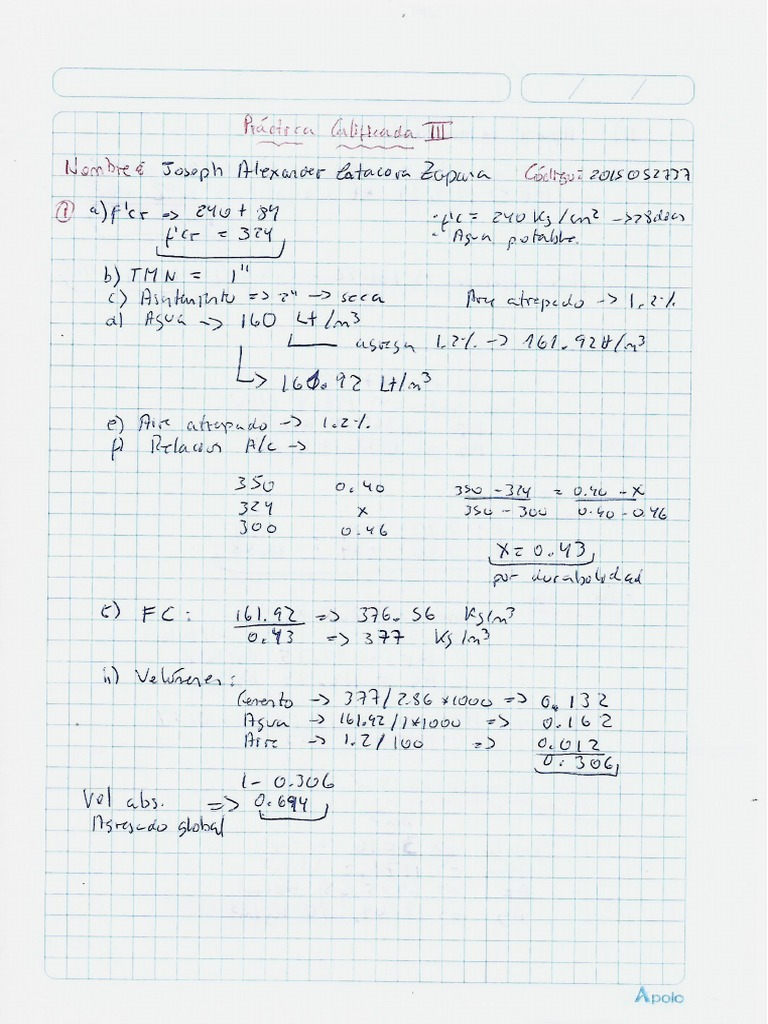 Práctica Calificada III
Nombre: Joseph Alexander Catacora Zapana Código: 2015052777
① a) f'cr => 240 + 84 · f'c = 240 Kg/cm² -> 28 dias
f'cr = 324 - Agua potable.
b) TMN = 1"
c) Asentamiento => 2" -> seca Aire atrapado -> 1.2%
d) Agua -> 160 Lt/m³
agrega 1.2% -> 161.92 lt/m³
-> 161.92 Lt/m³
e) Aire atrapado -> 1.2%
f) Relacion A/c ->
350 0.40 350 - 324 = 0.40 - x
324 x 350 - 300 0.40 - 0.46
300 0.46
x = 0.43
por durabilidad
FC: 161.92 => 376.56 Kg/m³
0.43 => 377 Kg/m³
ii) Volúmenes:
Cemento -> 377/2.86*1000 => 0.132
Agua -> 161.92/1*1000 => 0.162
Aire -> 1.2/100 => 0.012
0.306
1 - 0.306
Vol abs. => 0.694
Agregado global
Apolo